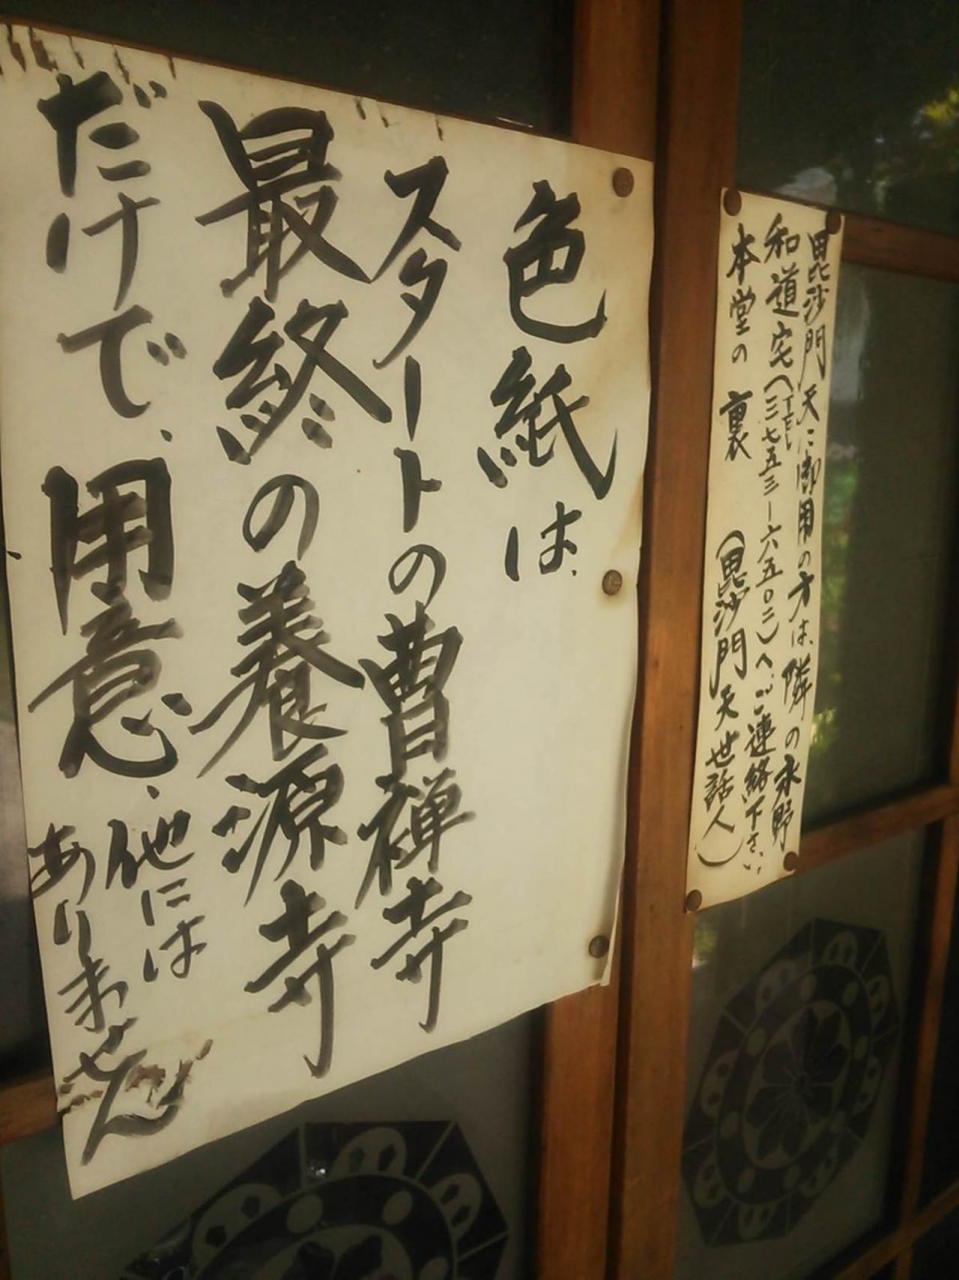 色紙は、
スタートの曹禅寺
最終の養源寺
だけで、用意、
他には
ありません
毘沙門天に御用の方は、隣の永野
和道宅(TEL三七五三ー六五〇二)へご連絡下さい
本堂の裏 (毘沙門天世話人)